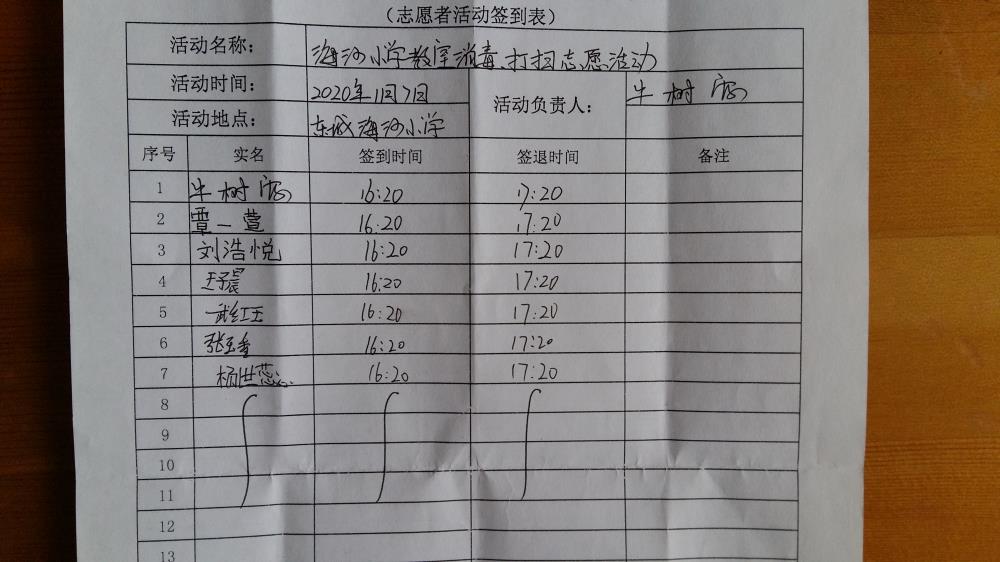 （志愿者活动签到表）
活动名称： 海河小学教室消毒、打扫志愿活动
活动时间： 2020年11月7日 活动负责人： 牛树
活动地点： 东城海河小学
序号 实名 签到时间 签退时间 备注
1 牛树 16:20 17:20
2 覃一萱 16:20 17:20
3 刘浩悦 16:20 17:20
4 王子晨 16:20 17:20
5 武红玉 16:20 17:20
6 张玉香 16:20 17:20
7 杨世蕊 16:20 17:20
8
9
10
11
12
13